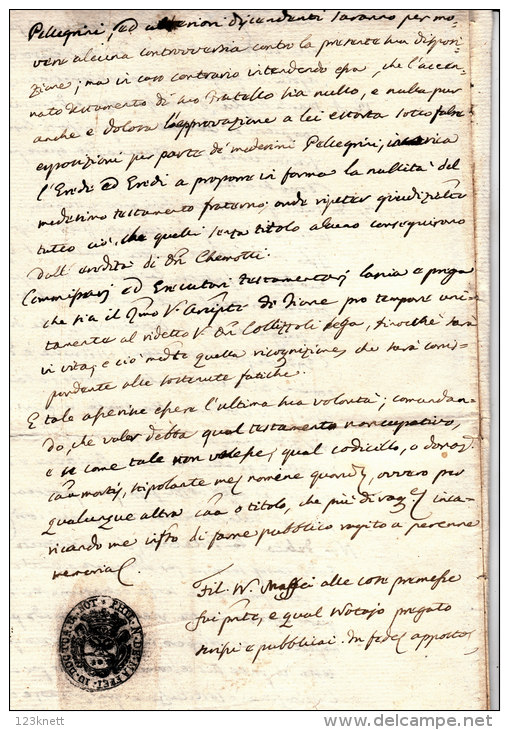 Pellegrini, ed ulteriori discendenti saranno per mo-
vere alcuna controversia contro la presente sua disposi-
zione; ma in caso contrario intendendo essa, che l'accen-
nato testamento di suo Fratello sia nullo, e nulla pur
anche e dolosa l'approvazione a lei estorta sotto false
esposizioni per parte de' medesimi Pellegrini, incarica
l'Erede ed Eredi a proporre in forma la nullità del
medesimo testamento fraterno, onde ripeter
tutto ciò, che quelli senza titolo alcuno conseguirono
dall' eredità di Chemotti.
Commissarj ed Esecutori testamentarj lascia e prega
che sia il di Fiave pro tempore uni-
tamente al ridetto finochè sarà
in vita, e ciò quella ricognizione, che sarà corris-
pondente alle sostenute fatiche.
E tale asserisce essere l'ultima sua volontà; comandan-
do, che valer debba qual testamento noncupativo,
e se come tale non valesse, qual codicillo, o
mortis, stipolante me nomine quorum, ovvero per
qualunque altra o titolo, che più di inca-
ricando me di farne pubblico rogito a perenne
memoria
Fil. Maffei alle cose premesse
fui e qual Notajo pregato
scrissi e pubblicai. In fede
123knett
www.delcampe.net